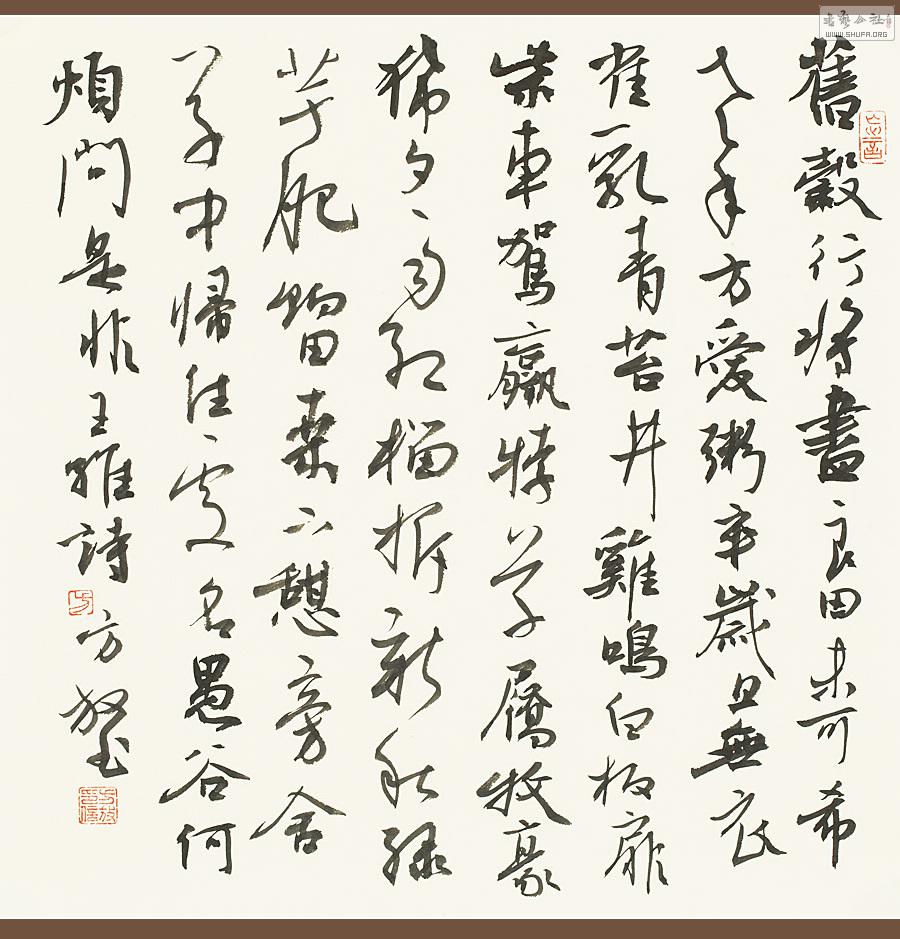 舊穀行將盡良田未可希
老年方愛粥卒歲且無衣
雀乳青苔井雞鳴白板扉
柴車駕羸牸草屩牧豪
豨夕雨紅榴拆新秋綠
芋肥餉田桑下憩旁舍
草中歸住處名愚谷何
煩問是非王維詩 方放書
書藝公社
WWW.SHUFA.ORG